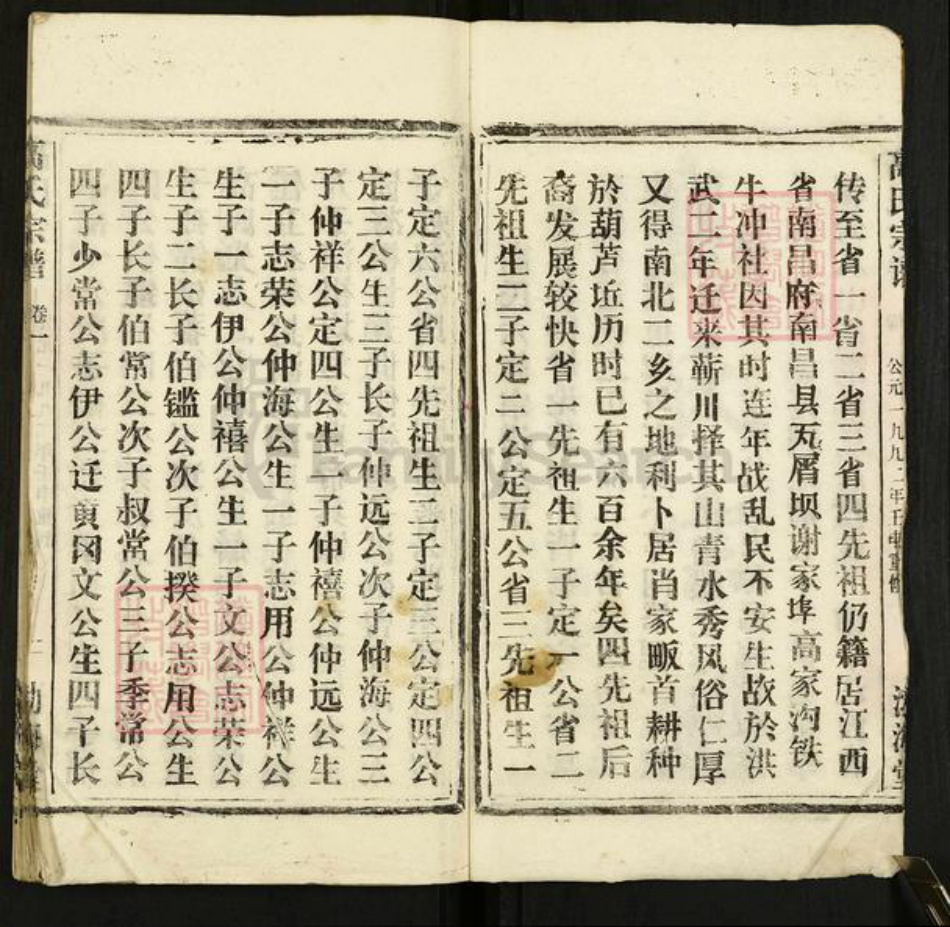 高氏宗谱
公元一九九二年
渤海堂
传至省一省二省三省四先祖仍籍居江西
省南昌府南昌县瓦屑坝谢家埠高家沟铁
牛冲社因其时连年战乱民不安生故於洪
武二年迁来蕲川择其山青水秀风俗仁厚
又得南北二亥之地利卜居肖家畈首耕种
於葫芦坵历时已有六百余年矣四先祖后
裔发展较快省一先祖生一子定一公省二
先祖生二子定二公定五公省三先祖生一
子定六公省四先祖生二子定三公定四公
定三公生三子长子仲远公次子仲海公三
子仲祥公定四公生一子仲禧公仲远公生
一子志荣公仲海公生一子志用公仲祥公
生子一志伊公仲禧公生一子文公志荣公
生子二长子伯鑑公次子伯揆公志用公生
四子长子伯常公次子叔常公三子季常公
四子少常公志伊公迁黄冈文公生四子长
高氏宗谱
卷一
一
渤海堂